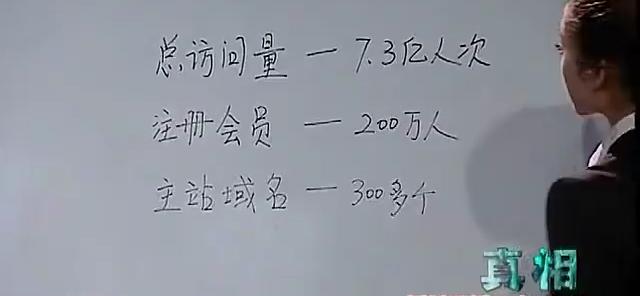 总访问量 — 7.3亿人次
注册会员 — 200万人
主站域名 — 300多个
真相